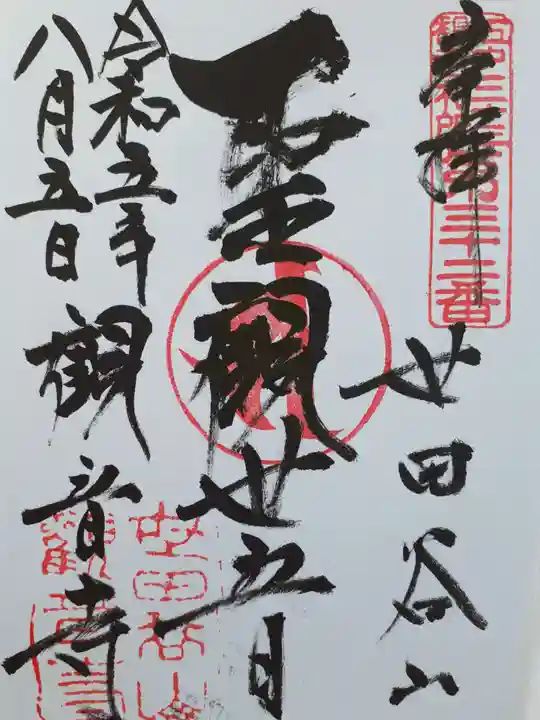 奉拝
世田谷山
聖観世音
令和五年
八月五日
観音寺
世田谷山
観音寺